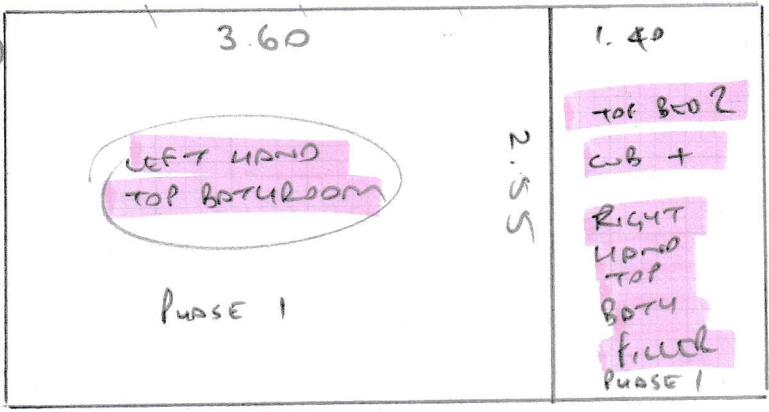 3.60
LEFT HAND
TOP BATHROOM
PHASE 1
2.55
1.40
TOP BED 2
CUB +
RIGHT
HAND
TOP
BATH
FILLER
PHASE 1